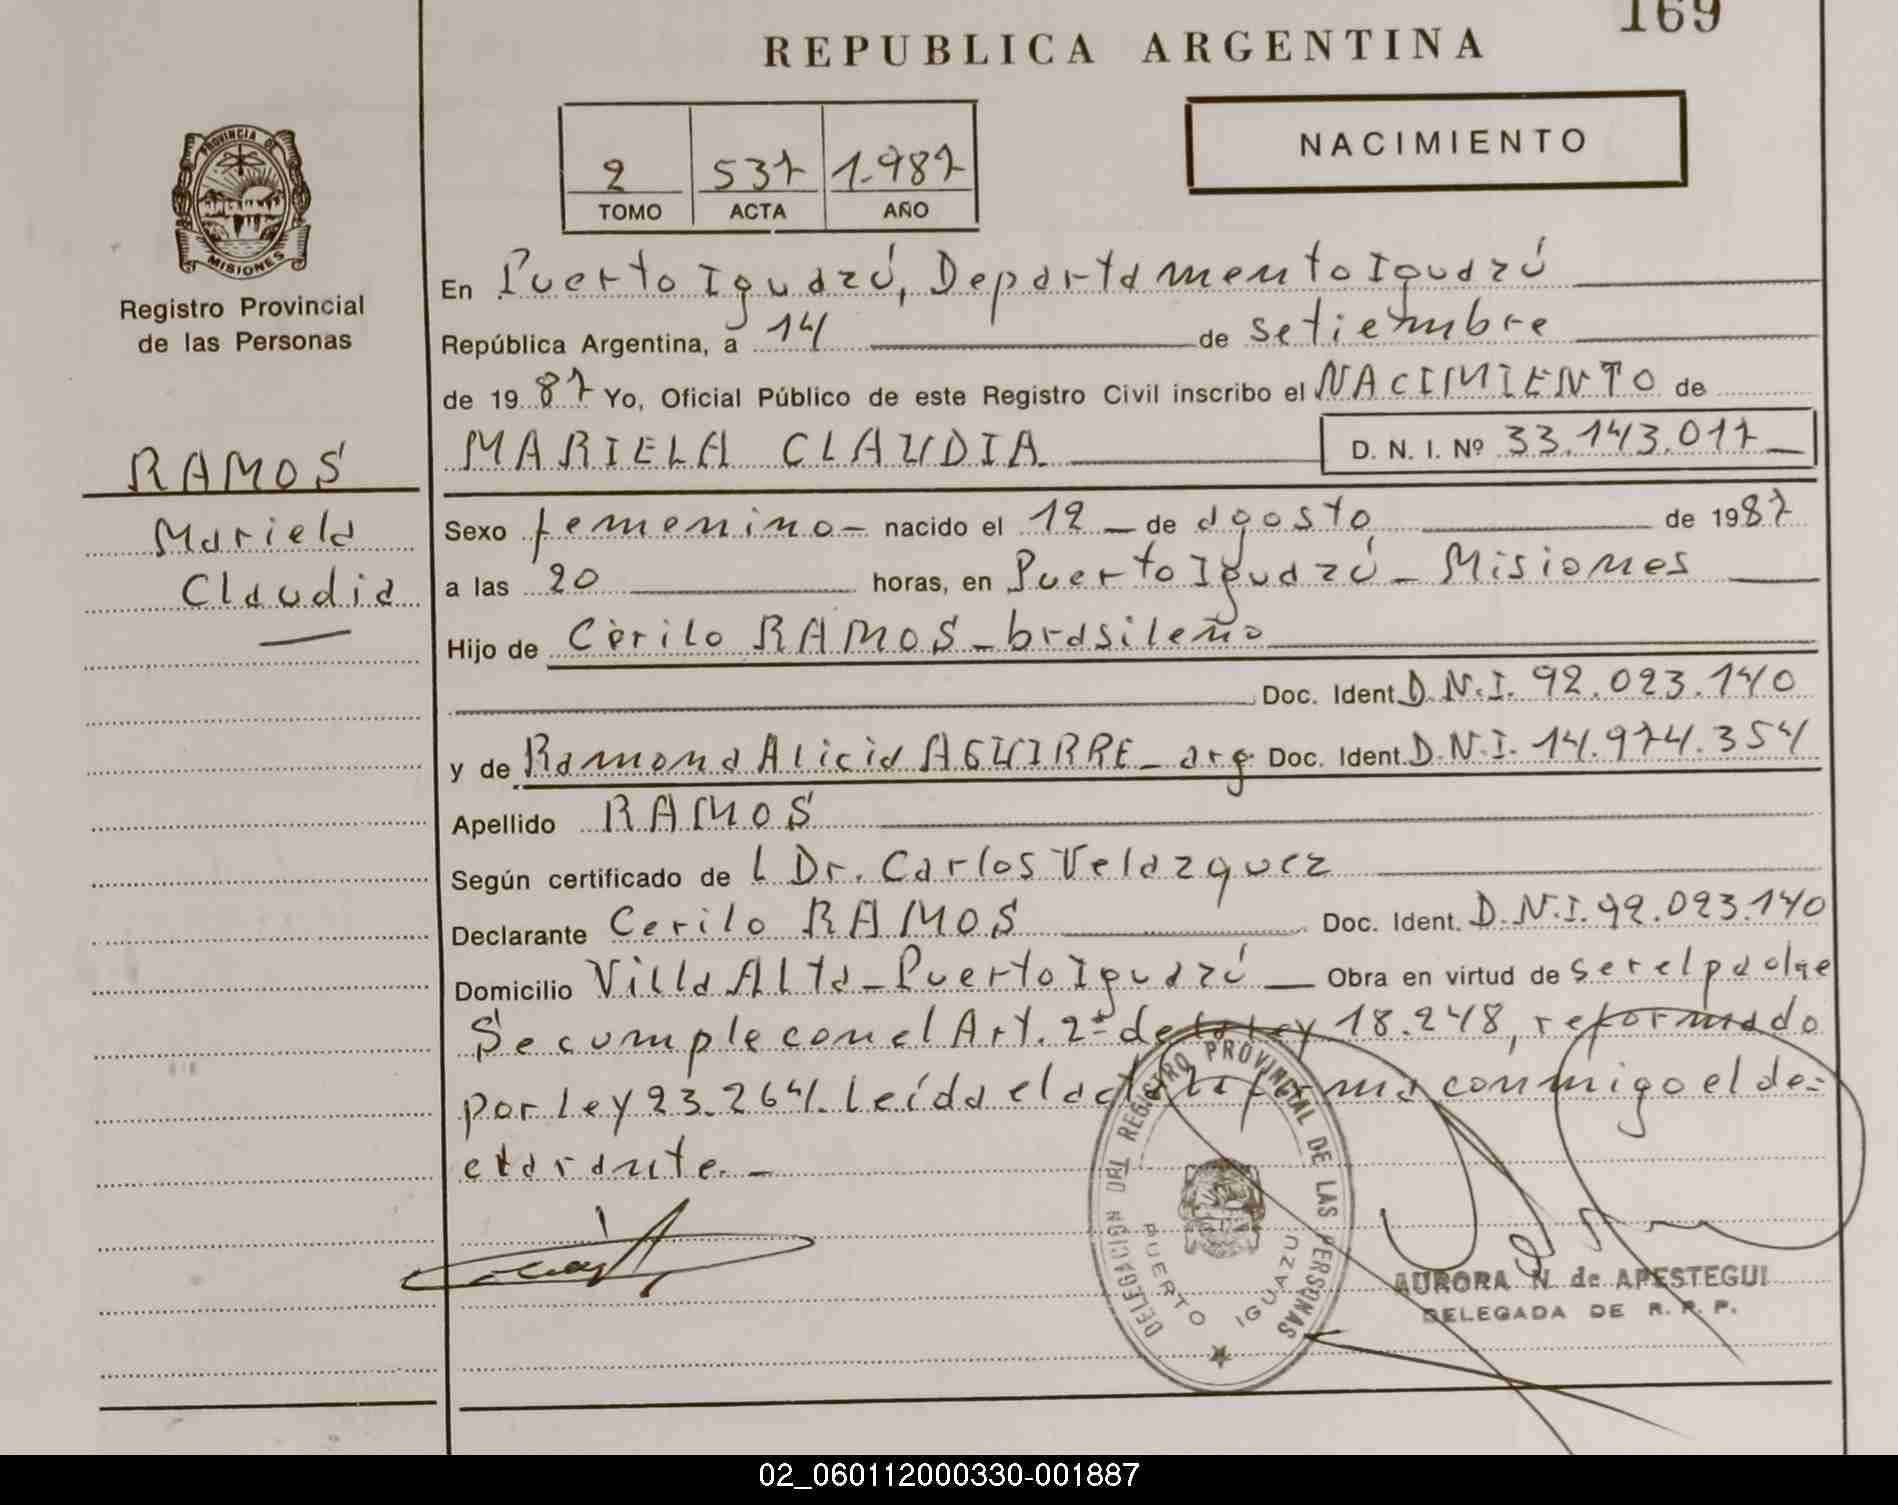 169
REPUBLICA ARGENTINA
NACIMIENTO
2 537 1.987
TOMO ACTA AÑO
PROVINCIA DE
MISIONES
Registro Provincial
de las Personas
RAMOS
Mariela
Claudia
En Puerto Iguazú, Departamento Iguazú
República Argentina, a 14 de setiembre
de 1987 Yo, Oficial Público de este Registro Civil inscribo el NACIMIENTO de
MARIELA CLAUDIA D. N. I. Nº 33.143.017
Sexo femenino - nacido el 12 - de agosto de 1987
a las 20 horas, en Puerto Iguazú - Misiones
Hijo de Cerilo RAMOS - brasileño
Doc. Ident. D.N.I. 92.023.140
y de Ramona Alicia AGUIRRE - arg Doc. Ident. D.N.I. 14.974.354
Apellido RAMOS
Según certificado de l Dr. Carlos Velazquez
Declarante Cerilo RAMOS Doc. Ident. D.N.I. 92.023.140
Domicilio Villa Alta - Puerto Iguazú - Obra en virtud de ser el padre
Se cumple con el Art. 2º de la Ley 18.248, reformado
por ley 23.264. Leída el acta la firma conmigo el de=
clarante. -
DELEGACION DEL REGISTRO PROVINCIAL DE LAS PERSONAS
PUERTO IGUAZU
AURORA N. de APESTEGUI
DELEGADA DE R. P. P.
02_060112000330-001887